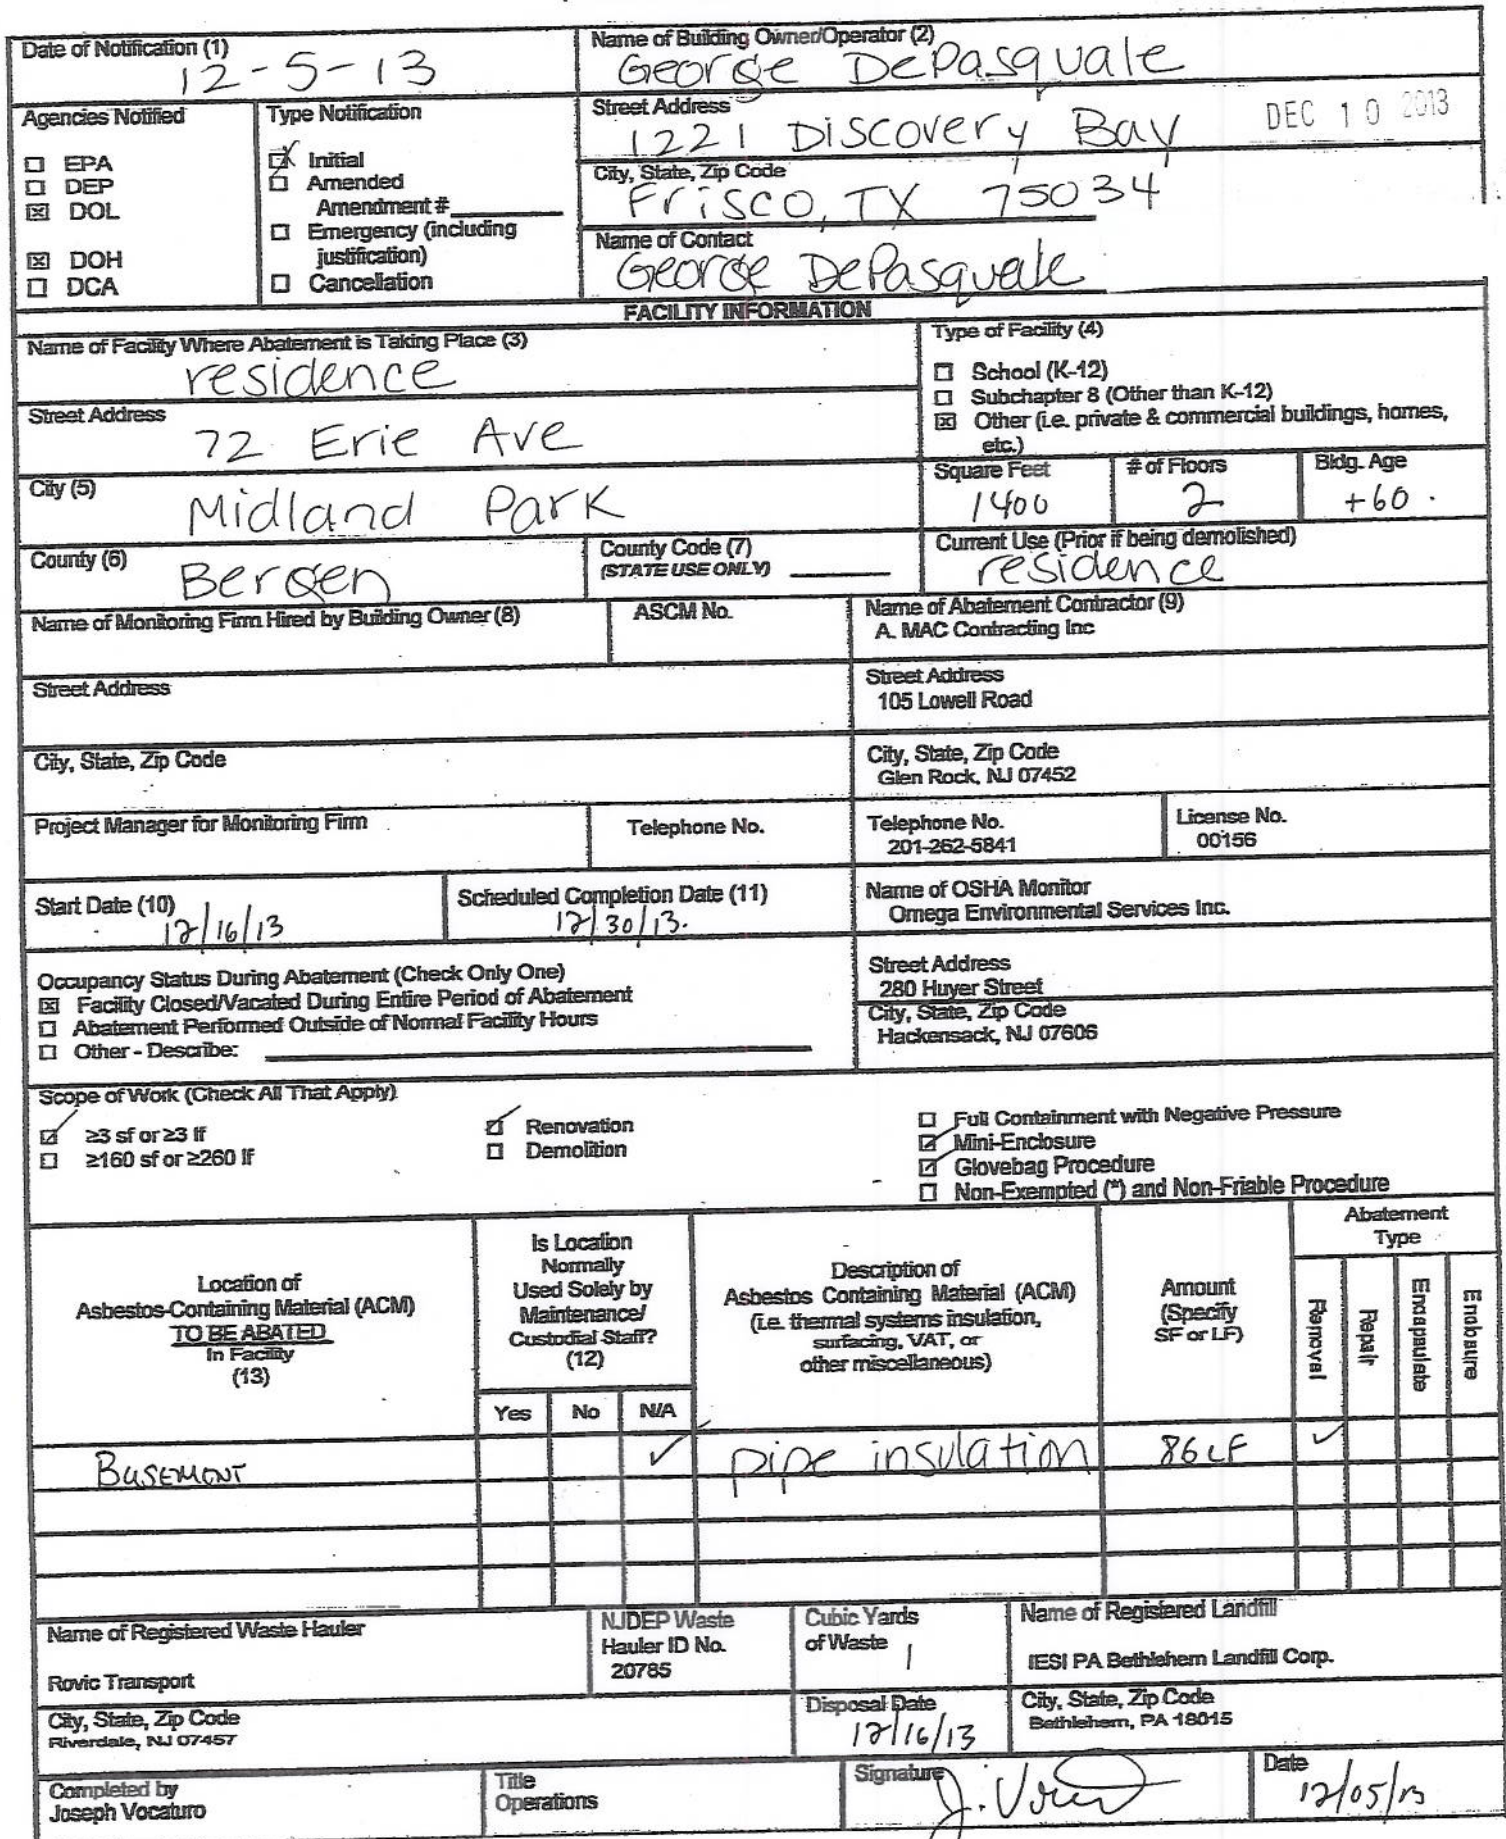 Date of Notification (1)
12-5-13
Name of Building Owner/Operator (2)
George DePasquale
Agencies Notified
☐ EPA
☐ DEP
☒ DOL
☒ DOH
☐ DCA
Type Notification
☒ Initial
☐ Amended
Amendment #
☐ Emergency (including
justification)
☐ Cancellation
Street Address
1221 Discovery Bay
DEC 10 2013
City, State, Zip Code
Frisco, TX 75034
Name of Contact
George DePasquale
FACILITY INFORMATION
Name of Facility Where Abatement is Taking Place (3)
residence
Type of Facility (4)
☐ School (K-12)
☐ Subchapter 8 (Other than K-12)
☒ Other (i.e. private & commercial buildings, homes,
etc.)
Street Address
72 Erie Ave
City (5)
Midland Park
Square Feet
1400
# of Floors
2
Bldg. Age
+60.
County (6)
Bergen
County Code (7)
(STATE USE ONLY)
Current Use (Prior if being demolished)
residence
Name of Monitoring Firm Hired by Building Owner (8)
ASCM No.
Name of Abatement Contractor (9)
A. MAC Contracting Inc
Street Address
Street Address
105 Lowell Road
City, State, Zip Code
City, State, Zip Code
Glen Rock, NJ 07452
Project Manager for Monitoring Firm
Telephone No.
Telephone No.
201-262-5841
License No.
00156
Start Date (10)
12/16/13
Scheduled Completion Date (11)
12/30/13.
Name of OSHA Monitor
Omega Environmental Services Inc.
Occupancy Status During Abatement (Check Only One)
☒ Facility Closed/Vacated During Entire Period of Abatement
☐ Abatement Performed Outside of Normal Facility Hours
☐ Other - Describe:
Street Address
280 Huyer Street
City, State, Zip Code
Hackensack, NJ 07606
Scope of Work (Check All That Apply)
☑ ≥3 sf or ≥3 lf
☐ ≥160 sf or ≥260 lf
☑ Renovation
☐ Demolition
☐ Full Containment with Negative Pressure
☑ Mini-Enclosure
☑ Glovebag Procedure
☐ Non-Exempted (*) and Non-Friable Procedure
Location of
Asbestos-Containing Material (ACM)
TO BE ABATED
In Facility
(13)
Is Location
Normally
Used Solely by
Maintenance/
Custodial Staff?
(12)
Yes No N/A
Description of
Asbestos Containing Material (ACM)
(i.e. thermal systems insulation,
surfacing, VAT, or
other miscellaneous)
Amount
(Specify
SF or LF)
Abatement
Type
Removal
Repair
Encapsulate
Enclosure
Basement ✓ pipe insulation 86 LF ✓
Name of Registered Waste Hauler
Rovic Transport
NJDEP Waste
Hauler ID No.
20785
Cubic Yards
of Waste
1
Name of Registered Landfill
IESI PA Bethlehem Landfill Corp.
City, State, Zip Code
Riverdale, NJ 07457
Disposal Date
12/16/13
City, State, Zip Code
Bethlehem, PA 18015
Completed by
Joseph Vocaturo
Title
Operations
Signature
Date
12/05/13